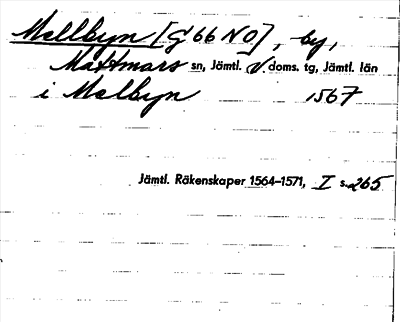 Mellbyn [G 66 NO], by,
Mattmars sn, Jämtl. V doms. tg, Jämtl. län
i Melbyn 1567
Jämtl. Räkenskaper 1564–1571, I s. 265